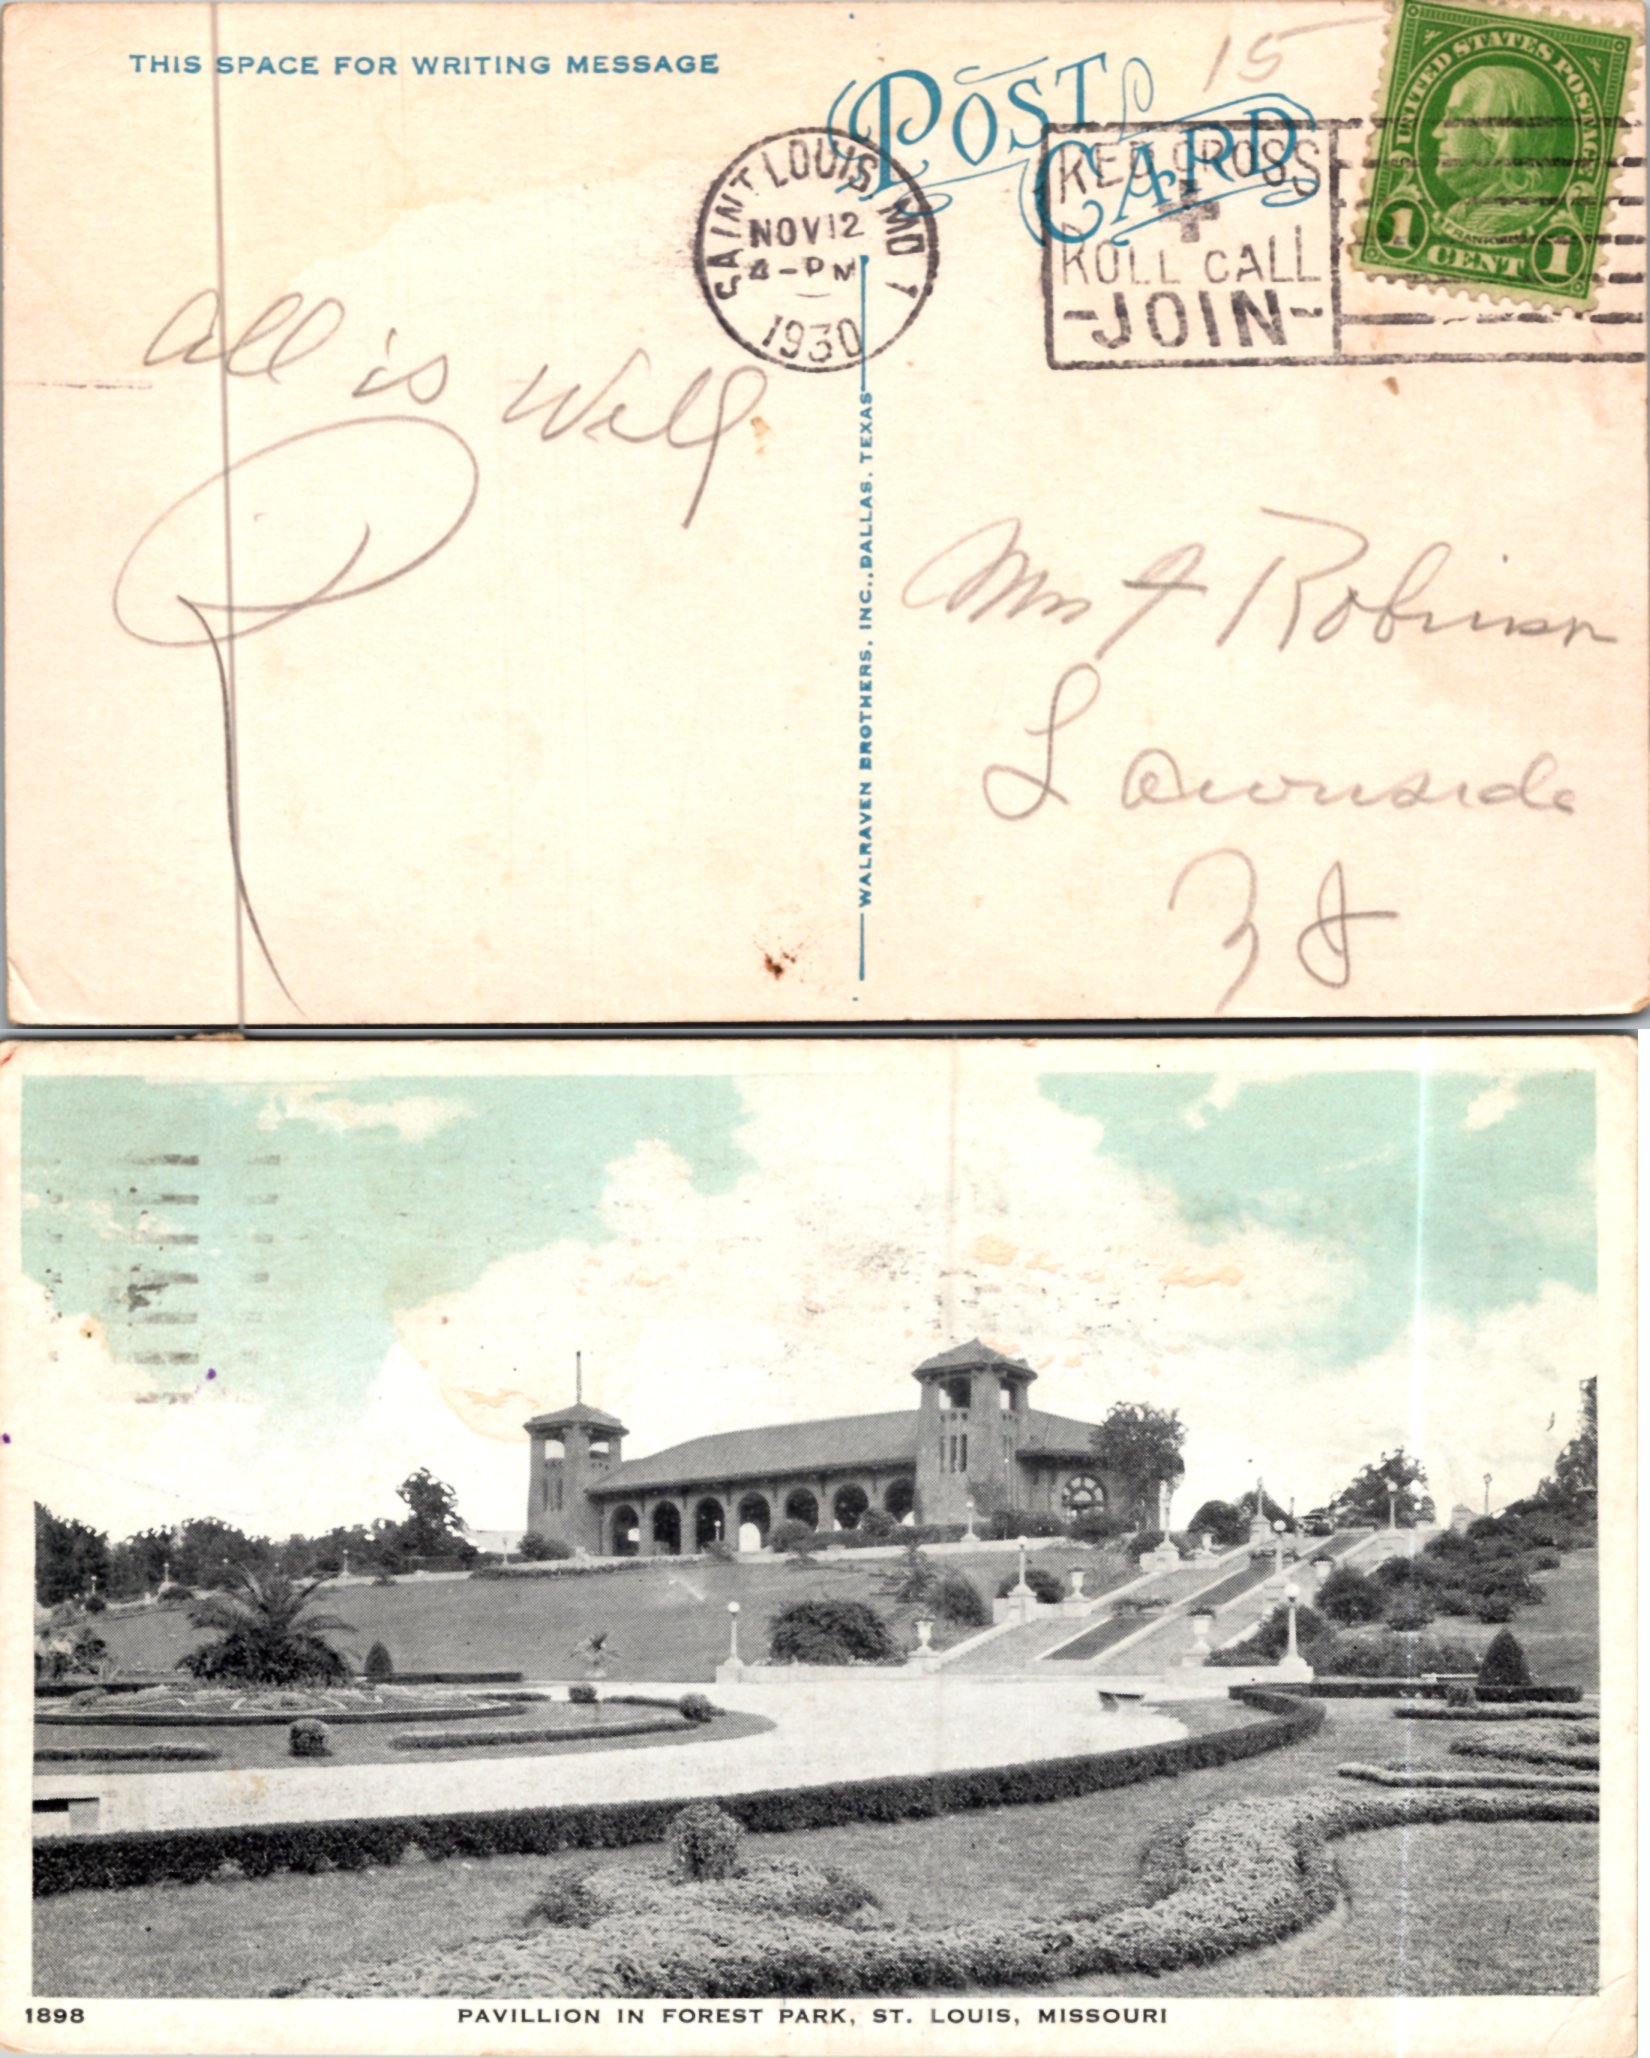 THIS SPACE FOR WRITING MESSAGE
POST CARD
15
SAINT LOUIS, MO 1
NOV 12
4-PM
1930
RED CROSS
ROLL CALL
-JOIN-
UNITED STATES POSTAGE
FRANKLIN
1 CENT 1
All is Well
WALRAVEN BROTHERS, INC., DALLAS, TEXAS
Robinson
Lawnside
N J
1898
PAVILLION IN FOREST PARK, ST. LOUIS, MISSOURI